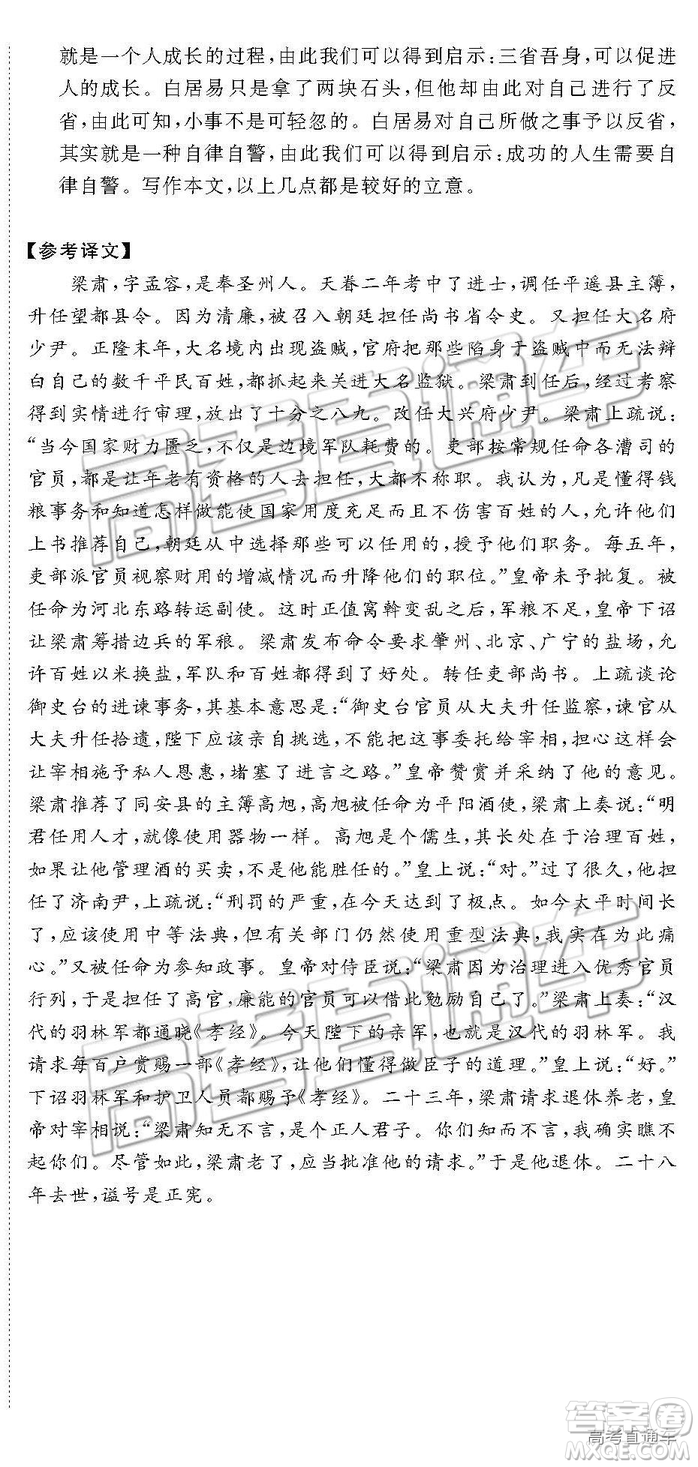 就是一个人成长的过程,由此我们可以得到启示:三省吾身,可以促进
人的成长。白居易只是拿了两块石头,但他却由此对自己进行了反
省,由此可知,小事不是可轻忽的。白居易对自己所做之事予以反省,
其实就是一种自律自警,我们可以得到启示:成功的人生需要自
律自警。写作本文,以上几点都是较好的立意。
【参考译文】
梁肃,字孟容,是奉圣州人。天眷二年考中了进士,调任平遥县主簿,
升任望都县令。因为清廉,被召入朝廷担任尚书省令史。又担任大名府
少尹。正隆末年,大名境内出现盗贼,官府把那些陷身于盗贼无法辩
白自己的数千平民百姓,都抓起来关进大名监狱。梁肃到任后,经过考察
得到实情进行审理,放出了十分之八九。改任大兴府少尹。梁肃上疏说:
“当今国家财力匮乏,不仅是边境军队耗费的。吏部按常规任命各漕司的
官员,都让年老有资格的人去担任,大都不称职。我认为,凡是懂得钱
粮事务和知道怎样做能使国家用度充足而且不伤害百姓的人,允许他们
上书推荐自己,朝廷从中选择那些可以任用的,授予他们职务。每五年,
吏部派官员视察财用的增减情况而升降他们的职位。”皇帝未予批复。被
任命为河北东路转运副使。这时正值窝斡变乱之后,军粮不足,皇帝下诏
让梁肃筹措边兵的军粮。梁肃发布命令要求肇州、北京、广宁的盐场,允
许百姓以米换盐,军队和百姓都得到了好处。转任吏部尚书。上疏谈论
御史台的进谏事务,其基本意思是:“御史台官员从大夫升任监察,谏官从
大夫升任拾遗,陛下应该亲自挑选,不能把这事委托给宰相,担心这样会
让宰相施予私人恩惠,堵塞了进言之路。”皇帝赞赏并采纳了他的意见。
梁肃推荐了同安县的主簿高旭,高旭被任命为平阳酒使。梁肃上奏说:“明
君任用人才,就像使用器物一样。高旭是个儒生,其长处在于治理百姓,
如果让他管理酒的买卖,不是他能胜任的。”皇上说:“对。”过了很久,他担
任了济南尹,上疏说:“刑罚的严重,在今天达到了极点。如今太平时间长
了,应该使用中等法典,但有关部门仍然使用重型法典,我实在为此痛
心。”又被任命为参知政事。皇帝对侍臣说:“梁肃因为治理进入优秀官员
行列,于是担任了高官,廉能的官员可以借此勉励自己了。”梁肃上奏:“汉
代的羽林军都通晓《孝经》。今天陛下的亲军,也就是汉代的羽林军。我
请求每百户赏赐一部《孝经》,让他们懂得做臣子的道理。”皇上说:“好。”
下诏羽林军和护卫人员都赐予《孝经》。二十三年,梁肃请求退休养老,皇
帝对宰相说:“梁肃知无不言,是个正人君子。你们知而不言,我确实瞧不
起你们。尽管如此,梁肃老了,应当批准他的请求。”于是他退休。二十八
年去世,谥号是正宪。
高考直通车
高考直通车
高考直通车
答案卷
高考直通车
MXQE.COM